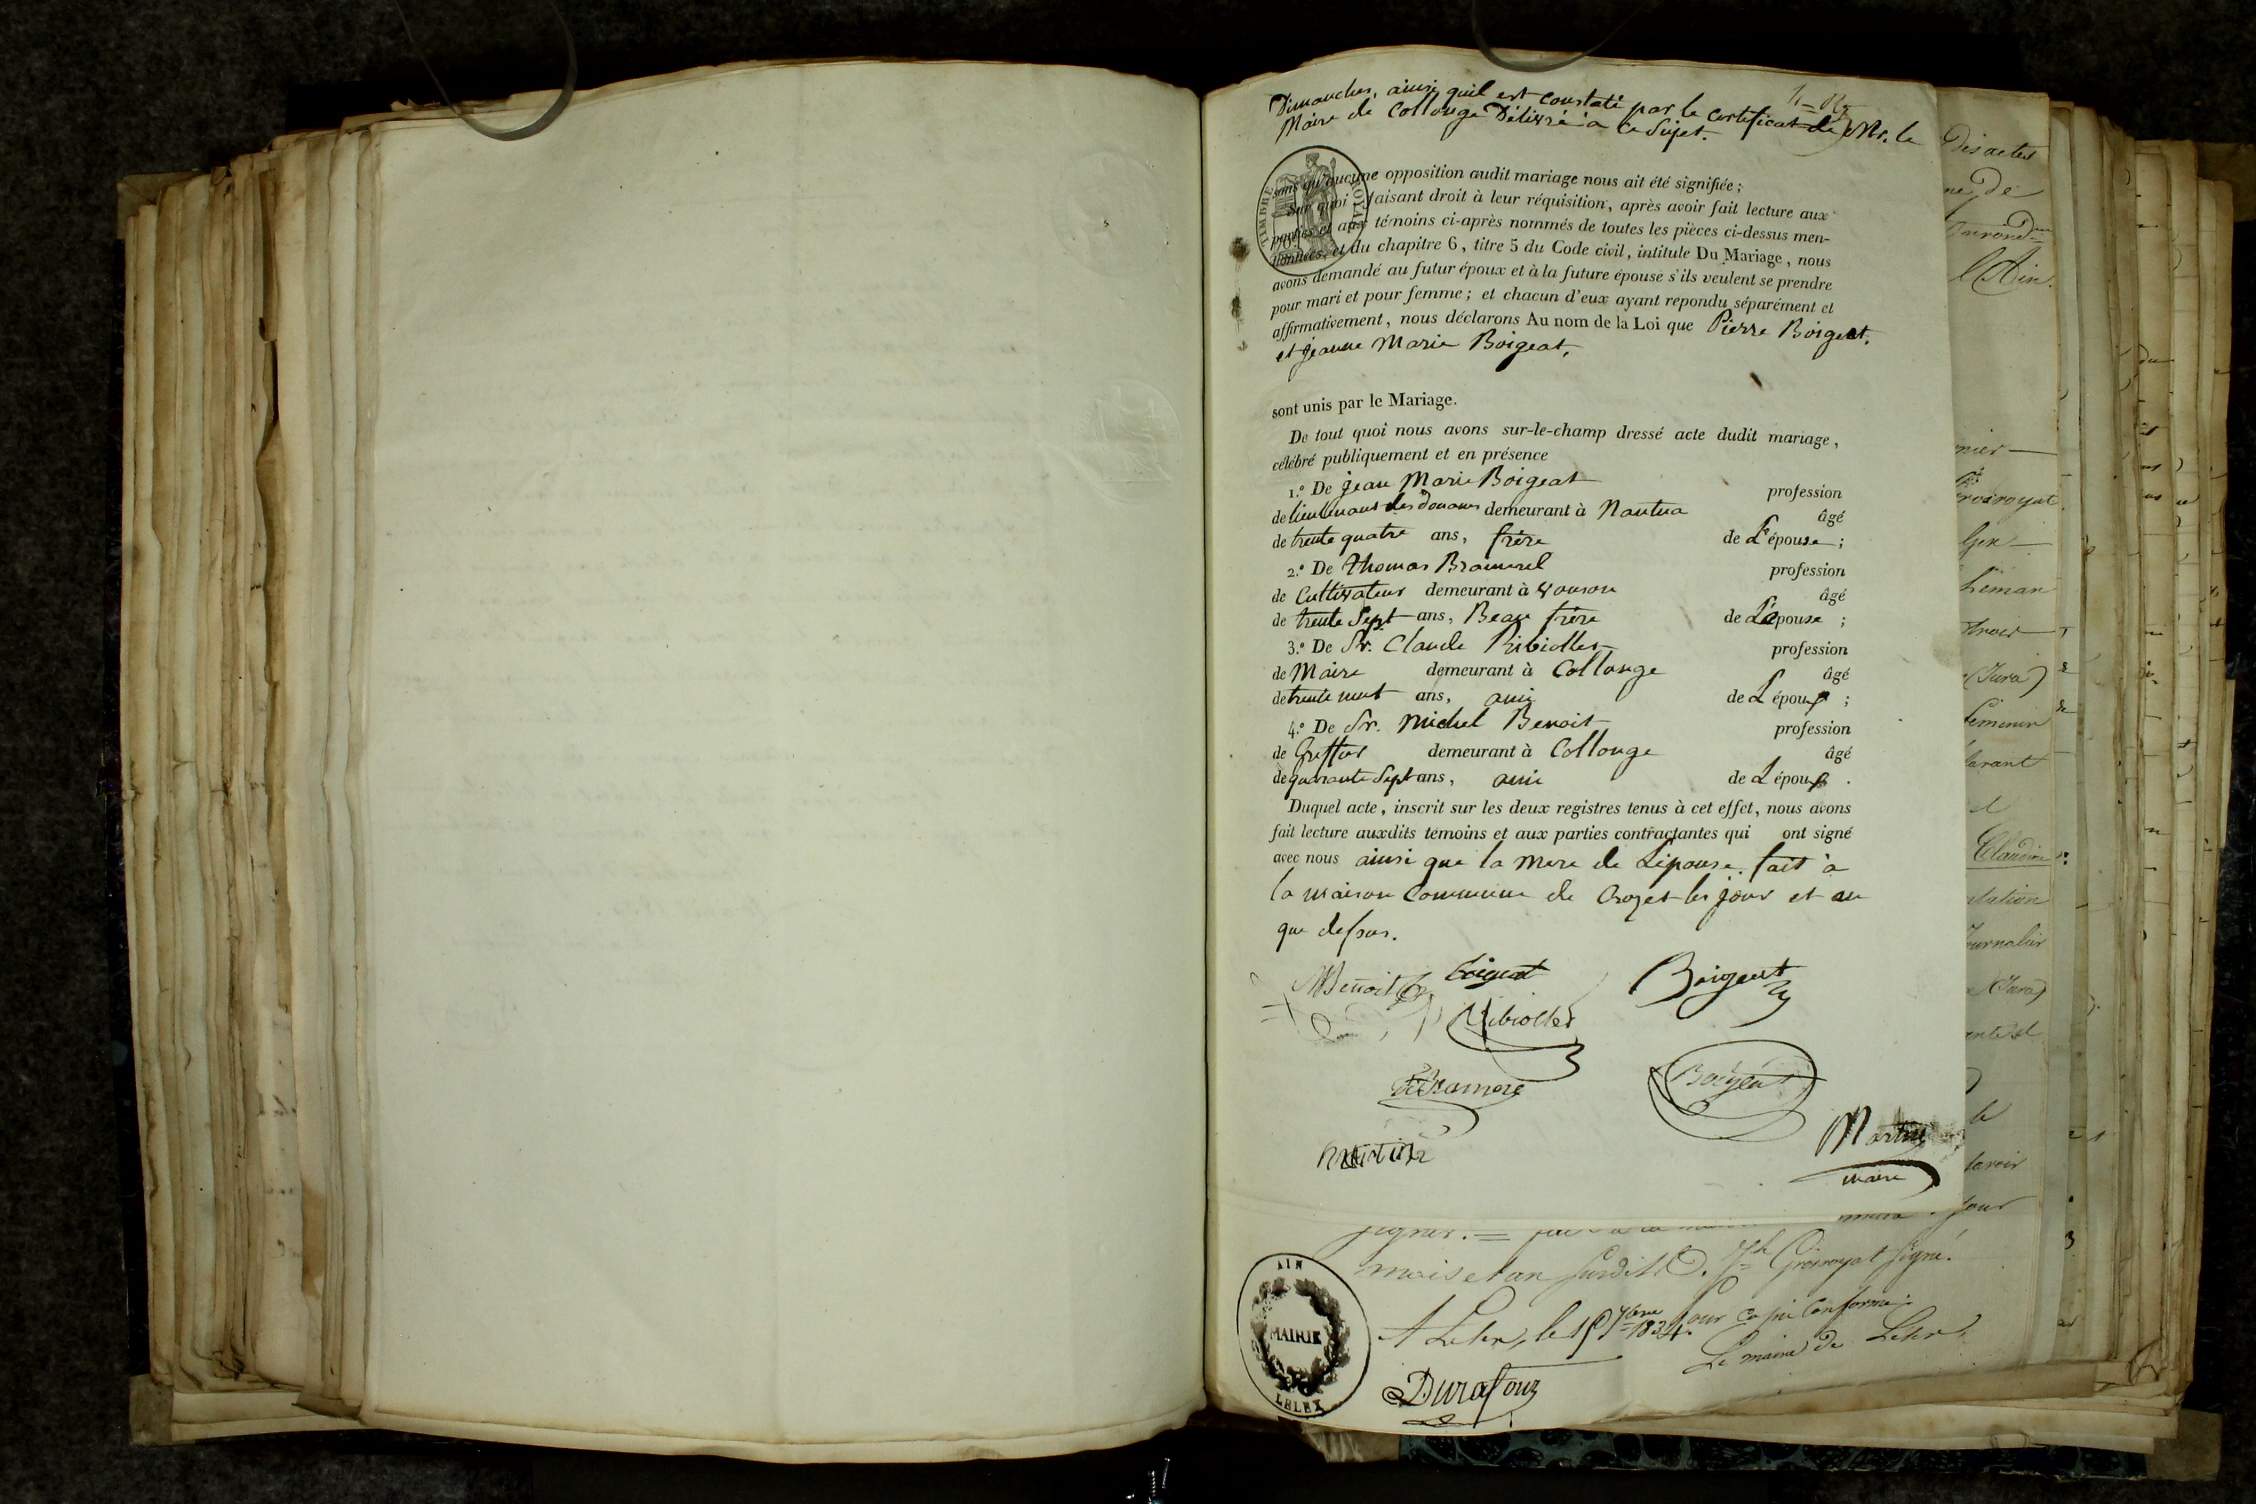 Dimanches, ainsi quil est constaté par le certificat de Mr. le
Maire de Collonge Délivré à ce Sujet.
TIMBRE ROYAL
sans qu'aucune opposition audit mariage nous ait été signifiée ;
Sur quoi faisant droit à leur réquisition, après avoir fait lecture aux
parties et aux témoins ci-après nommés de toutes les pièces ci-dessus men-
tionnées, et du chapitre 6, titre 5 du Code civil, intitule Du Mariage, nous
avons demandé au futur époux et à la future épouse s'ils veulent se prendre
pour mari et pour femme ; et chacun d'eux ayant repondu séparément et
affirmativement, nous déclarons Au nom de la Loi que Pierre Boigeat,
et jeanne Marie Boigeat,
sont unis par le Mariage.
De tout quoi nous avons sur-le-champ dressé acte dudit mariage,
célébré publiquement et en présence
1.º De jean Marie Boigeat profession
de lieutenant des Douanes demeurant à Nantua âgé
de trente quatre ans, frère de L'épouse ;
2.º De thomas profession
de Cultivateur demeurant à âgé
de trente Sept ans, Beau frère de L'épouse ;
3.º De Sr. Claude Ribiollet profession
de Maire demeurant à Collonge âgé
de trente neuf ans, ami de L époux ;
4.º De Sr. Michel Benoit profession
de Greffier demeurant à Collonge âgé
de quarante Sept ans, ami de L époux .
Duquel acte, inscrit sur les deux registres tenus à cet effet, nous avons
fait lecture auxdits témoins et aux parties contractantes qui ont signé
avec nous ainsi que la mere de Lépouse. fait à
la maison Commune de Crozet les jour et an
que dessus.
MBenoit Boigeat Boigeat
Ribiollet
Boigeat
Martin
maire
mois et an susdits. Grosroyat signé.
A Lelex, le 15 7bre 1834. Pour copie conforme.
Le maire de Lelex,
AIN
MAIRIE
LELEX
Durafour
Des actes
ne de
l'Ain.
Grosroyat
Gex
Léman
trois
(Jura)
féminin
Claudine
Journalier
(Jura)
jour